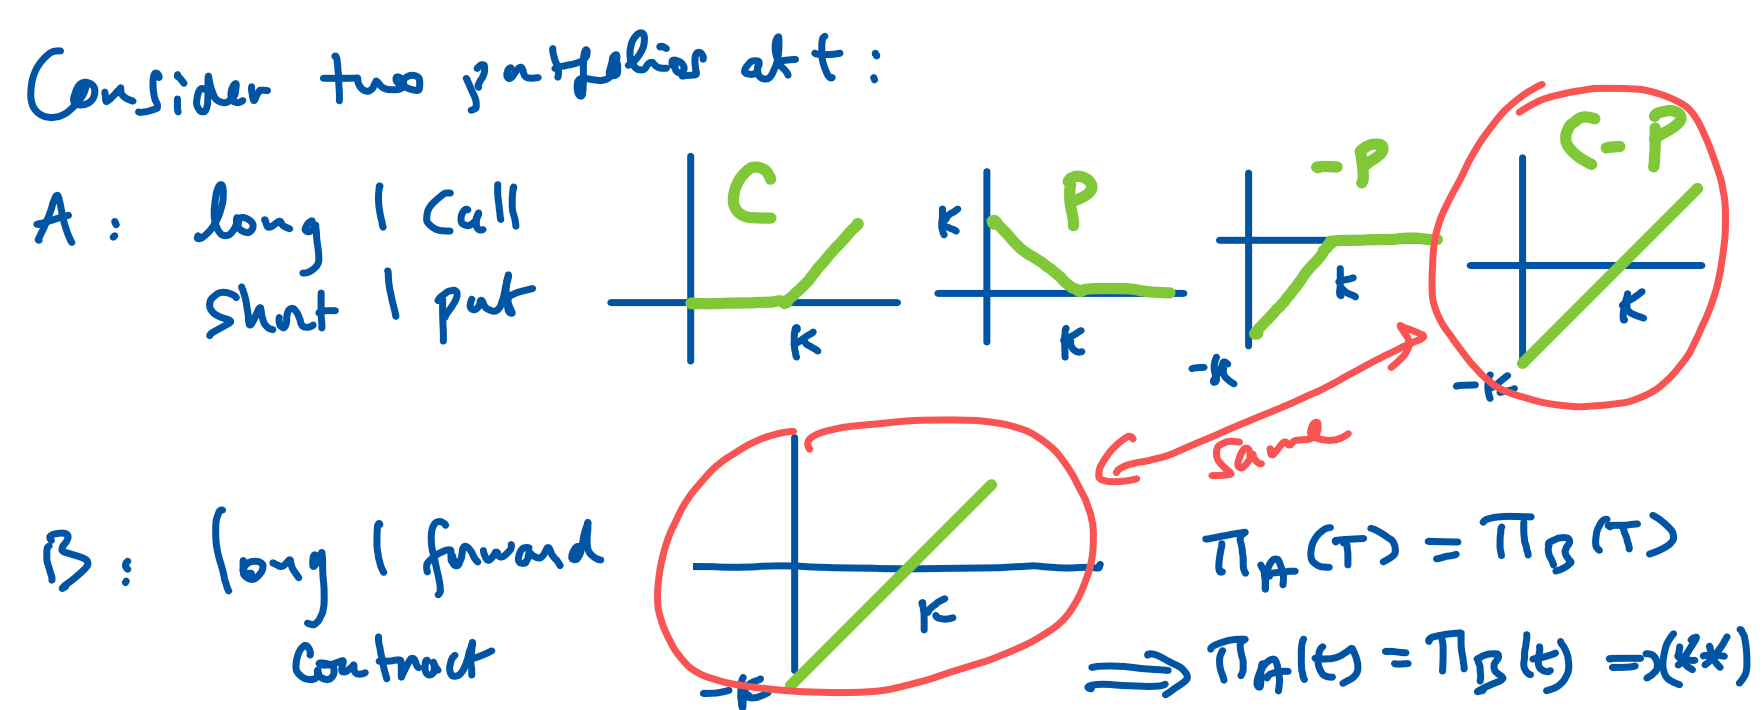 Consider two portfolios at t :
C - P
C
P
-P
A : long 1 Call
short 1 put
K
K
K
K
K
-K
-K
same
B : long 1 forward
contract
K
-K
Π_A(T) = Π_B(T)
⟹ Π_A(t) = Π_B(t) ⟹ (**)